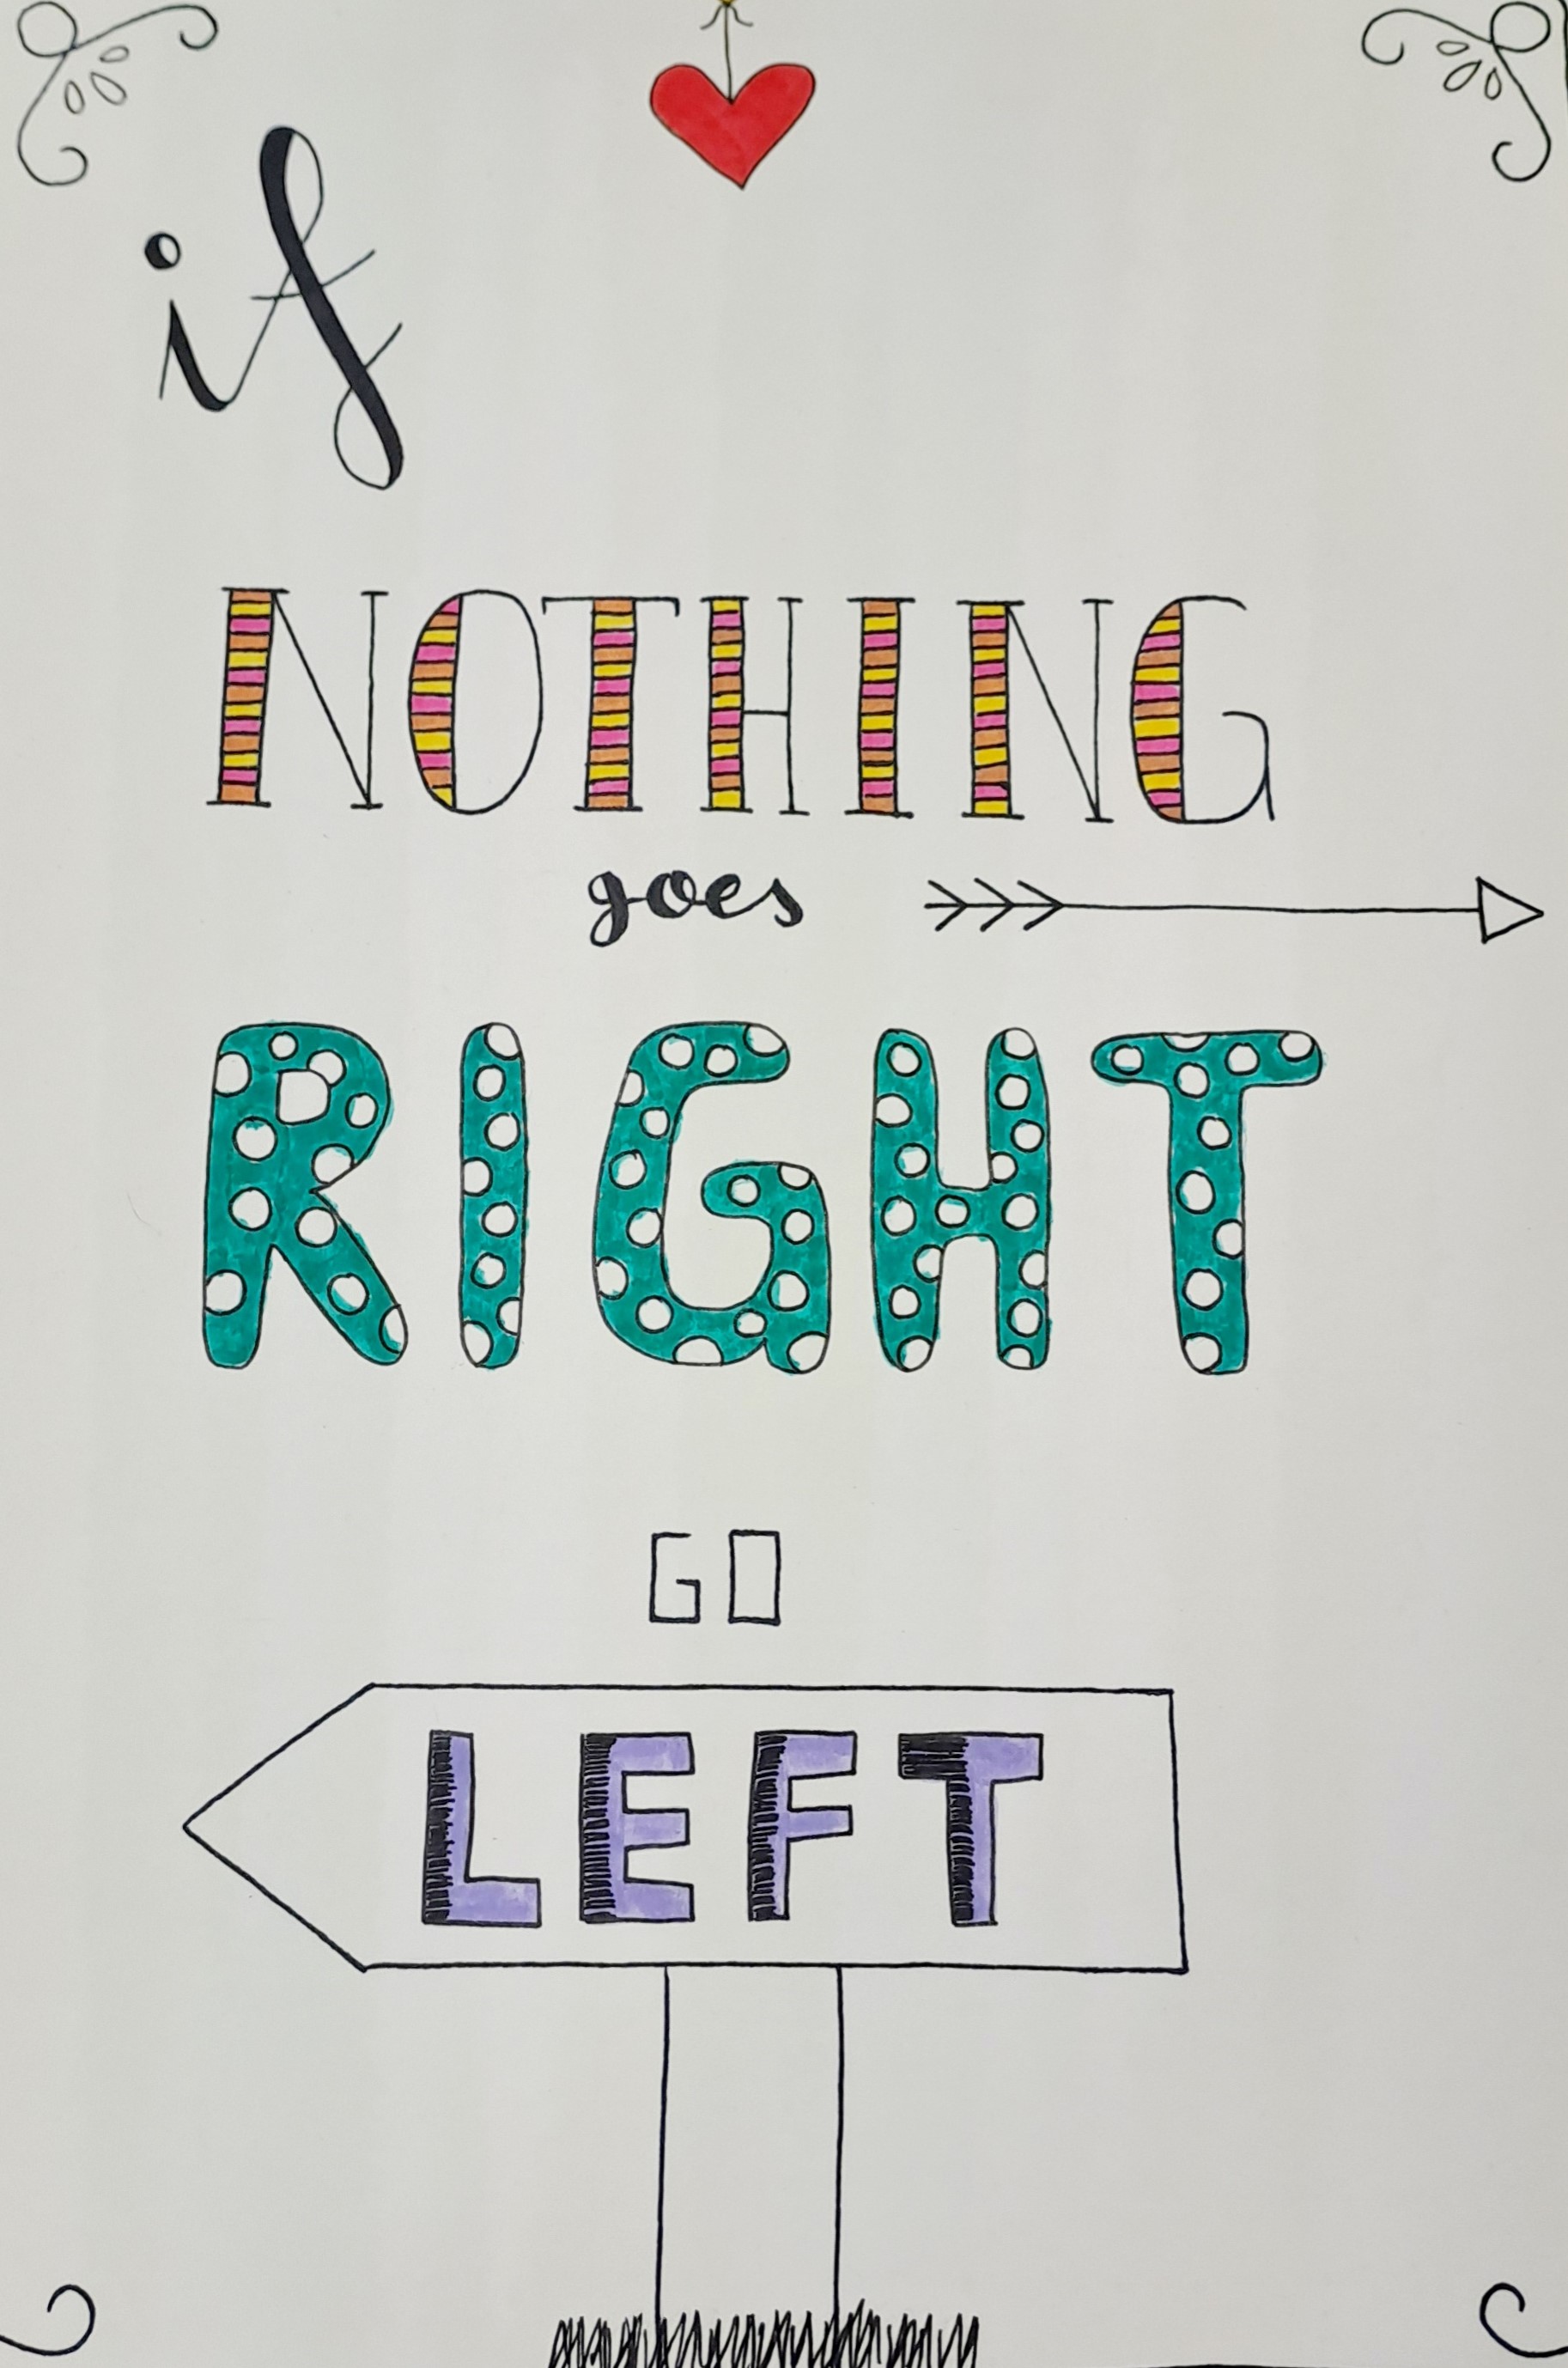 if
NOTHING
goes
RIGHT
GO
LEFT